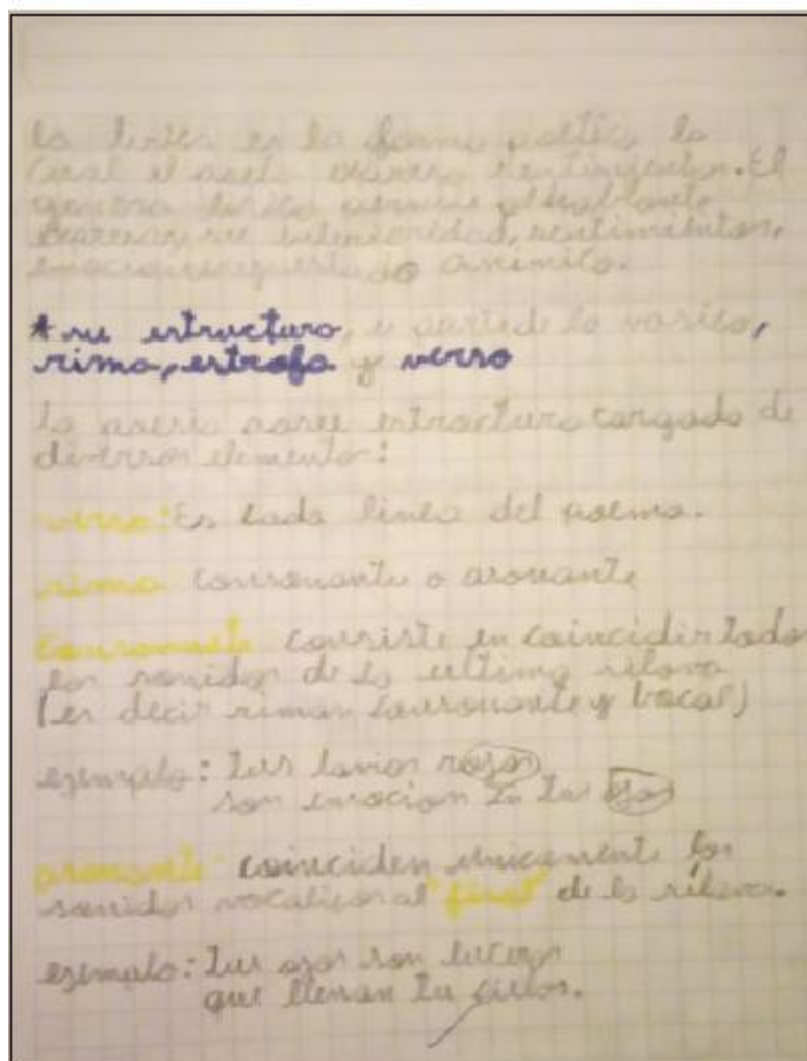 la lirica es la forma poetica la
cual el poeta expresa sentimientos. El
genero lirico permite al hablante
expresar su interioridad, sentimientos,
emociones estado animico.
*su estructura, es parte de lo vasico,
rima, estrofa y verso
la poesia posee estructura cargada de
diversos elementos:
verso: Es cada linea del poema.
rima consonante o asonante
consonante consiste en coincidir todo
los sonidos de la ultima silava
(es decir riman consonante y bocal)
ejemplo: tus lavios rojos
son emocion to tus ojos
asonante coinciden unicamente los
sonidos vocalicos al "final" de la silava.
ejemplo: tus ojos son luceros
que llenan tu cielos.